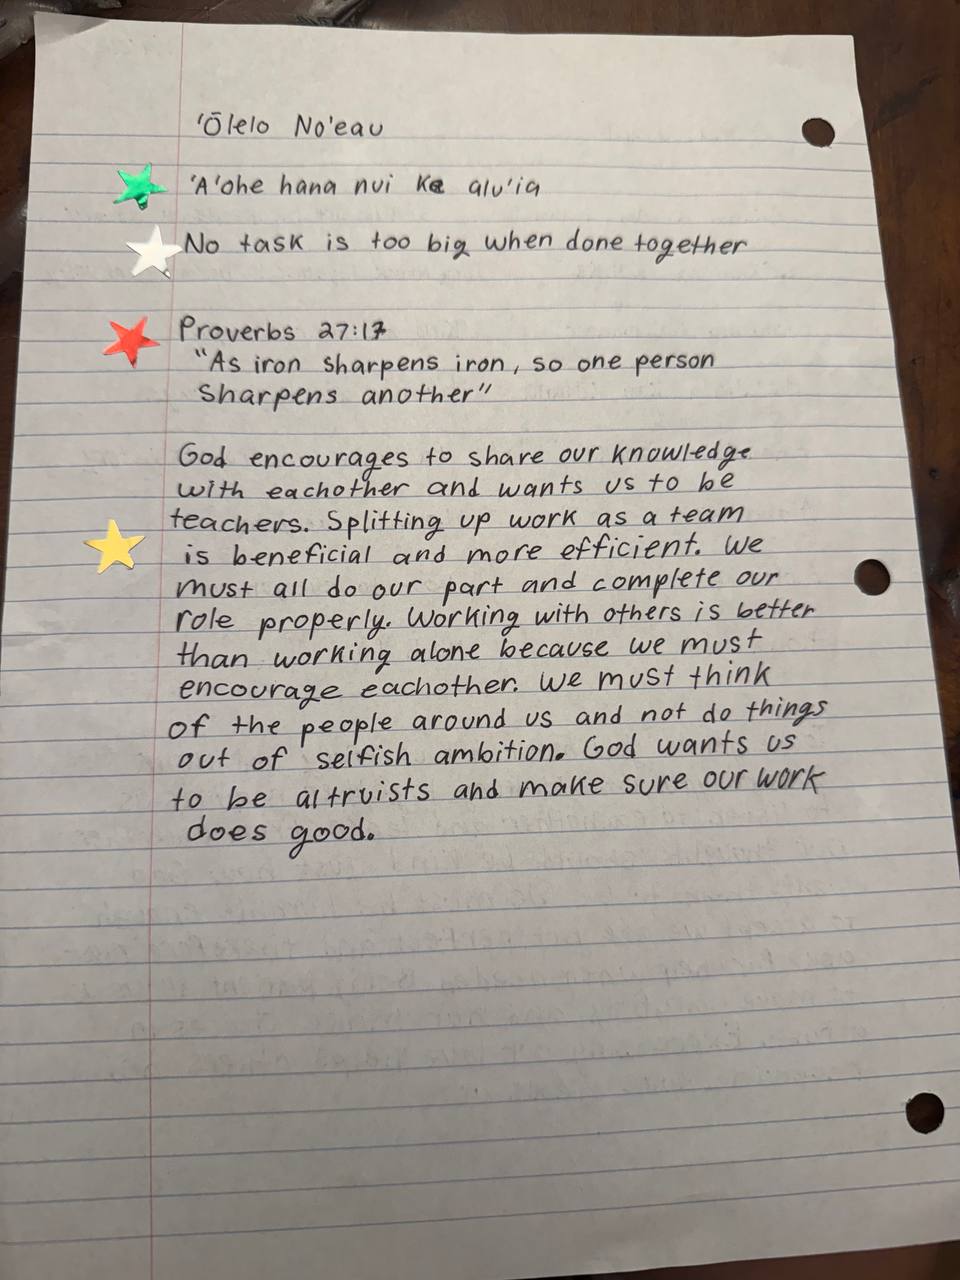 'Ōlelo No'eau
'A'ohe hana nui ke alu'ia
No task is too big when done together
Proverbs 27:17
"As iron sharpens iron, so one person
sharpens another"
God encourages to share our knowledge
with eachother and wants us to be
teachers. Splitting up work as a team
is beneficial and more efficient. We
must all do our part and complete our
role properly. Working with others is better
than working alone because we must
encourage eachother. We must think
of the people around us and not do things
out of selfish ambition. God wants us
to be altruists and make sure our work
does good.